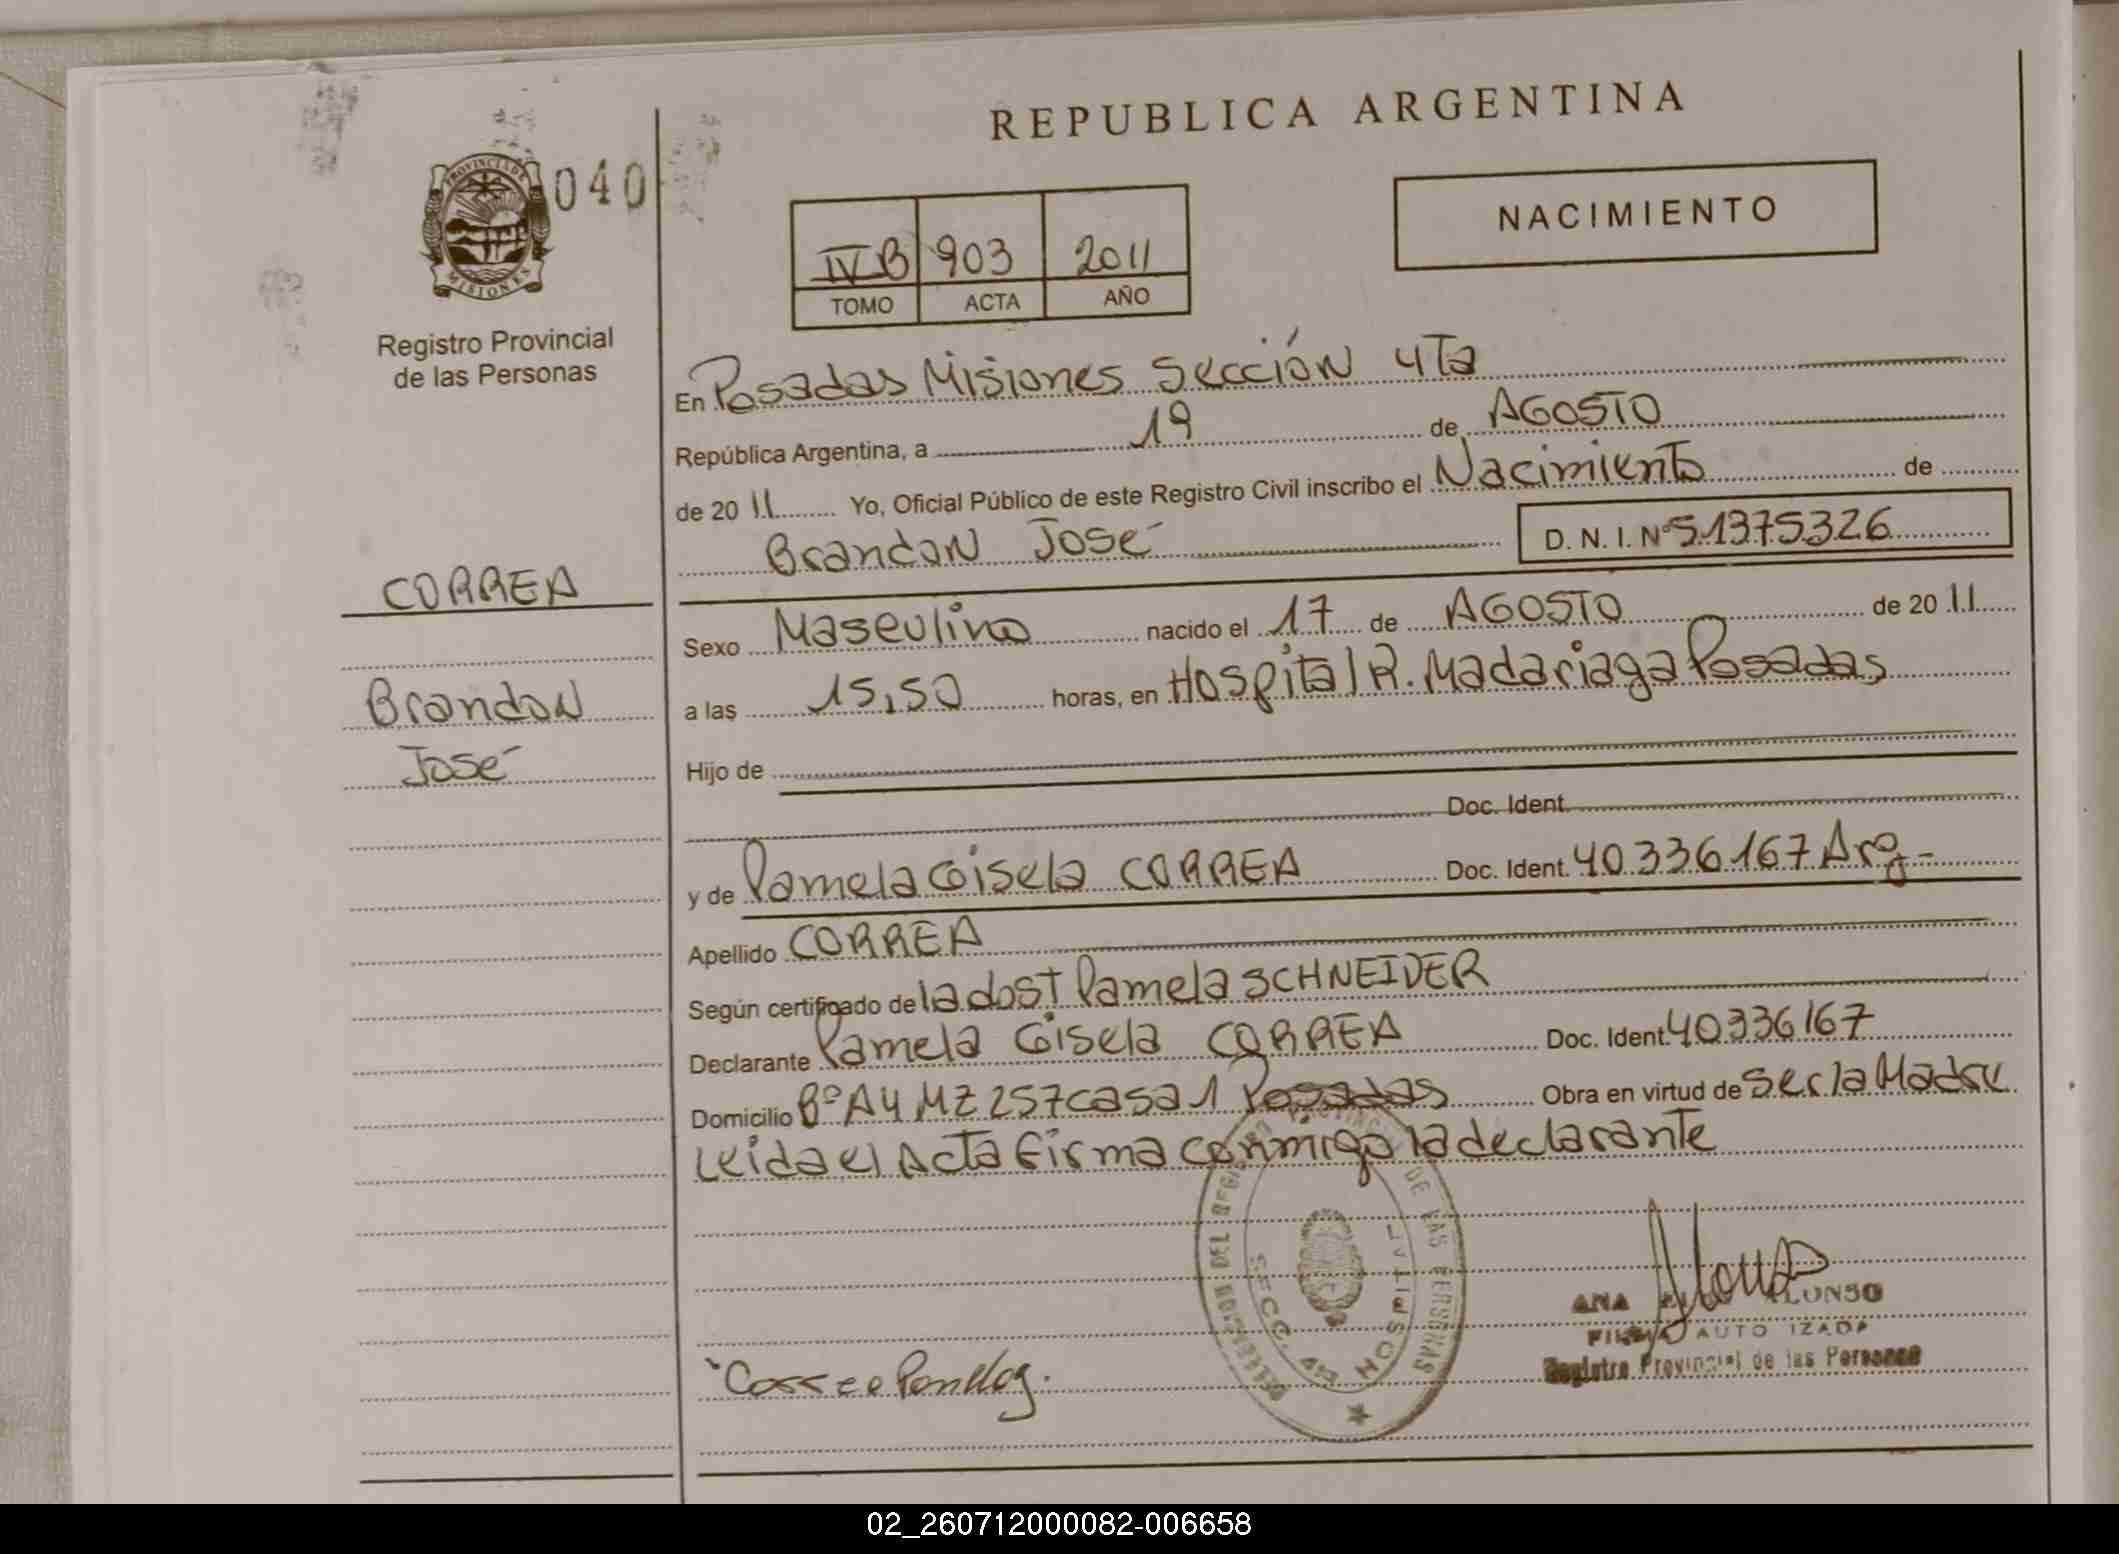 REPUBLICA ARGENTINA
PROVINCIA DE MISIONES
040
Registro Provincial
de las Personas
NACIMIENTO
IVB 903 2011
TOMO ACTA AÑO
En Posadas Misiones Sección 4Ta
República Argentina, a 19 de AGOSTO
de 2011 Yo, Oficial Público de este Registro Civil inscribo el Nacimiento de
Brandon José D. N. I. Nº 51375326
CORREA
Brandon
José
Sexo Masculino nacido el 17 de AGOSTO de 2011
a las 15,50 horas, en Hospital R. Madariaga Posadas
Hijo de
Doc. Ident.
y de Pamela Gisela CORREA Doc. Ident. 40336167 Arg-
Apellido CORREA
Según certificado de la dost Pamela SCHNEIDER
Declarante Pamela Gisela CORREA Doc. Ident. 40336167
Domicilio Bº A4 MZ 257 casa 1 Posadas Obra en virtud de ser la Madre
Leida el Acta firma conmigo la declarante
DEL REGISTRO DE LAS PERSONAS
SECC. 4ª
ANA ALONSO
FIRMA AUTORIZADA
Registro Provincial de las Personas
Correa
02_260712000082-006658